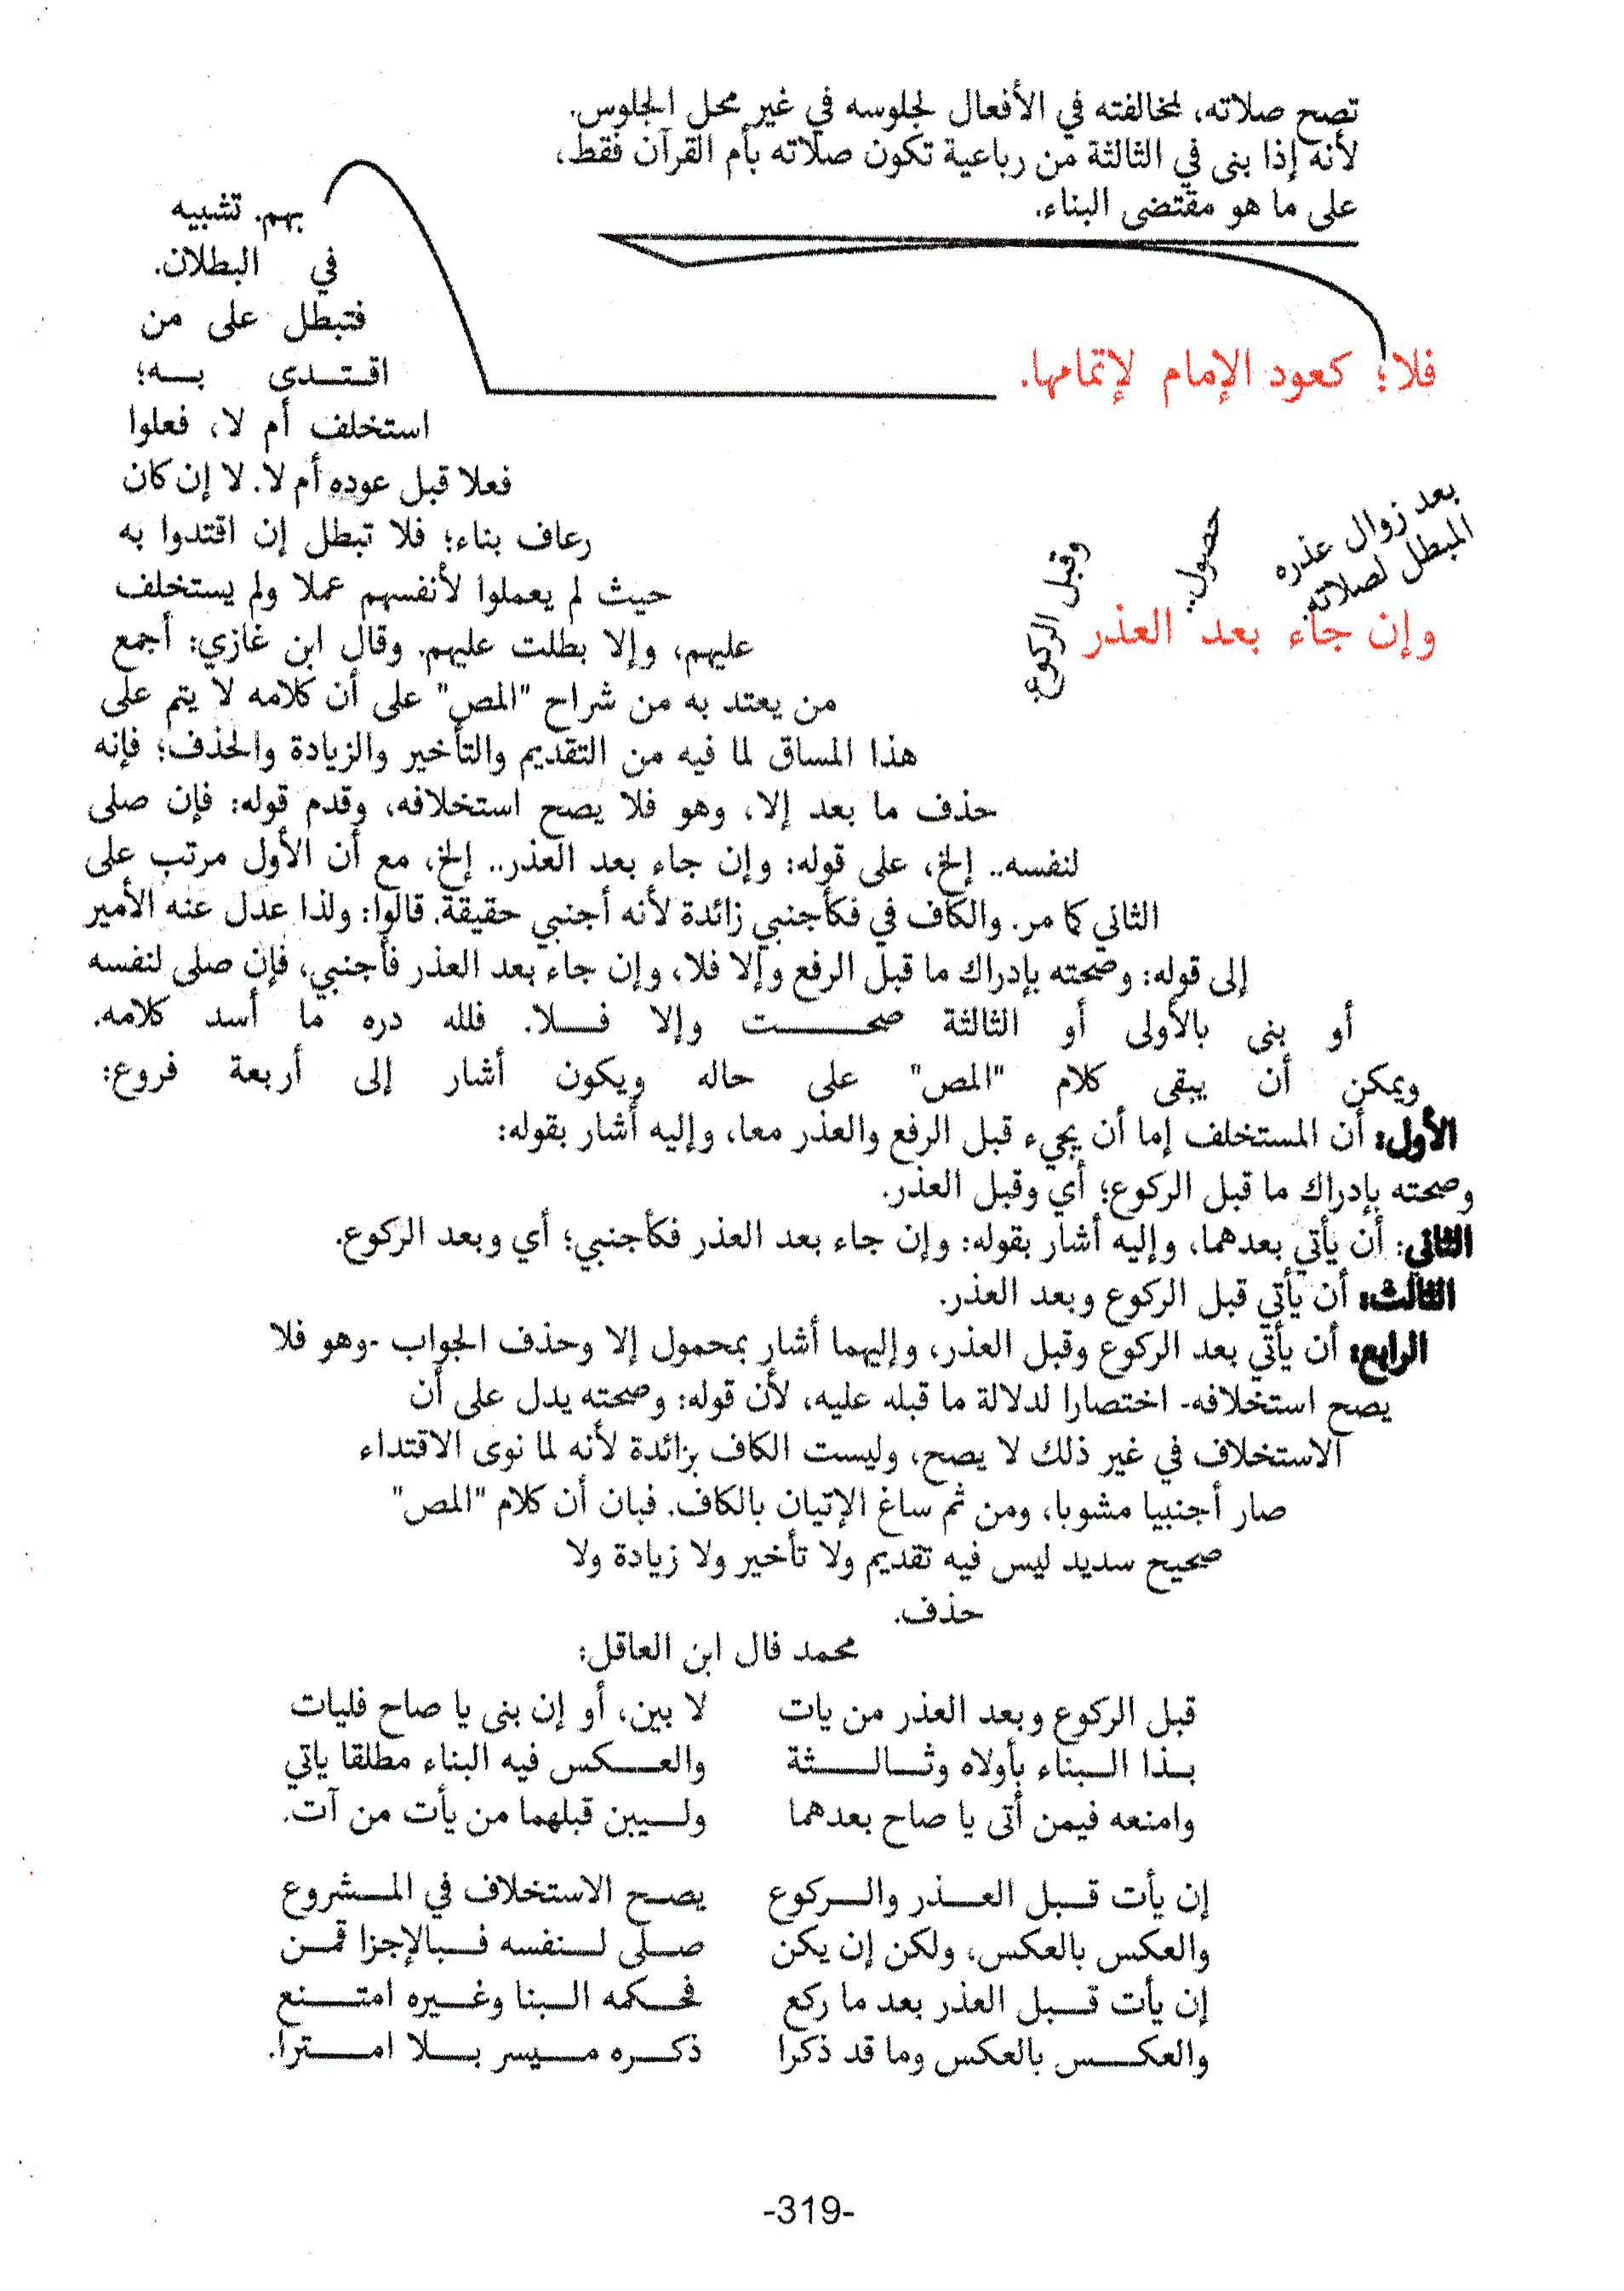 تصح صلاته، لمخالفته في الأفعال لجلوسه في غير محل الجلوس.
لأنه إذا بنى في الثالثة من رباعية تكون صلاته بأم القرآن فقط،
على ما هو مقتضى البناء.
فلا؛ كعود الإمام لإتمامها.
بهم. تشبيه
في البطلان.
فتبطل على من
اقتدى به؛
استخلف أم لا، فعلوا
فعلا قبل عوده أم لا. لا إن كان
رعاف بناء؛ فلا تبطل إن اقتدوا به
حيث لم يعملوا لأنفسهم عملا ولم يستخلف
عليهم، وإلا بطلت عليهم. وقال ابن غازي: أجمع
من يعتد به من شراح "المص" على أن كلامه لا يتم على
هذا المساق لما فيه من التقديم والتأخير والزيادة والحذف؛ فإنه
حذف ما بعد إلا، وهو فلا يصح استخلافه، وقدم قوله: فإن صلى
لنفسه.. إلخ، على قوله: وإن جاء بعد العذر.. إلخ، مع أن الأول مرتب على
الثاني كما مر. والكاف في فكأجنبي زائدة لأنه أجنبي حقيقة. قالوا: ولذا عدل عنه الأمير
إلى قوله: وصحته بإدراك ما قبل الرفع وإلا فلا، وإن جاء بعد العذر فأجنبي، فإن صلى لنفسه
أو بنى بالأولى أو الثالثة صحت وإلا فلا. فلله دره ما أسد كلامه.
ويمكن أن يبقى كلام "المص" على حاله ويكون أشار إلى أربعة فروع:
الأول: أن المستخلف إما أن يجيء قبل الرفع والعذر معا، وإليه أشار بقوله:
وصحته بإدراك ما قبل الركوع؛ أي وقبل العذر.
الثاني: أن يأتي بعدهما، وإليه أشار بقوله: وإن جاء بعد العذر فكأجنبي؛ أي وبعد الركوع.
الثالث: أن يأتي قبل الركوع وبعد العذر.
الرابع: أن يأتي بعد الركوع وقبل العذر، وإليهما أشار بمحمول إلا وحذف الجواب -وهو فلا
يصح استخلافه- اختصارا لدلالة ما قبله عليه، لأن قوله: وصحته يدل على أن
الاستخلاف في غير ذلك لا يصح، وليست الكاف بزائدة لأنه لما نوى الاقتداء
صار أجنبيا مشوبا، ومن ثم ساغ الإتيان بالكاف. فبان أن كلام "المص"
صحيح سديد ليس فيه تقديم ولا تأخير ولا زيادة ولا
حذف.
بعد زوال عذره
المبطل لصلاته
حصول..
وقبل الركوع
وإن جاء بعد العذر
محمد فال ابن العاقل:
قبل الركوع وبعد العذر من يات لا بين، أو إن بنى يا صاح فليات
بذا البناء بأولاه وثالثة والعكس فيه البناء مطلقا ياتي
وامنعه فيمن أتى يا صاح بعدهما وليبن قبلهما من يأت من آت.
إن يأت قبل العذر والركوع يصح الاستخلاف في المشروع
والعكس بالعكس، ولكن إن يكن صلى لنفسه فبالإجزا قمن
إن يأت قبل العذر بعد ما ركع فحكمه البنا وغيره امتنع
والعكس بالعكس وما قد ذكرا ذكره ميسر بلا امترا.
-319-